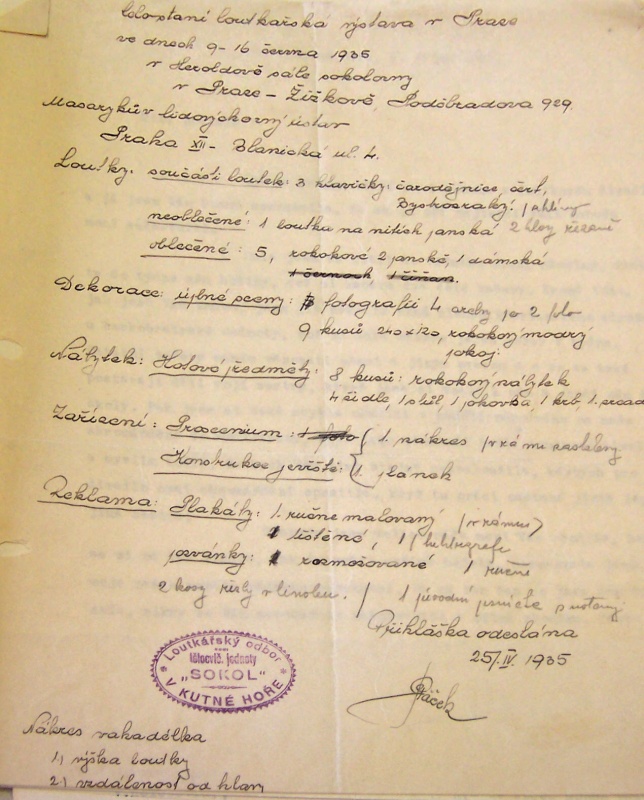 Celostaní loutkařská výstava v Praze
ve dnech 9-16 června 1935
v Heroldově sále sokolovny
v Praze - Žižkově, Poděbradova 929.
Masarykův lidovýchovný ústav
Praha XII - Blanická ul. 4.
Loutky. součásti loutek: 3 hlavičky: čarodějnice, čert,
Bystrozraký!
neoblečené: 1 loutka na nitích panská 2 hlavy řezané
oblečené: 5, rokokové 2 panské, 1 dámská
1 černoch 1 číňan.
Dekorace: úplné sceny: fotografií 4 archy po 2 foto
9 kusů 240 x 120, rokokový modrý
pokoj.
Nábytek: Hotové předměty: 8 kusů: rokokový nábytek
4 židle, 1 stůl, 1 pohovka, 1 krb, 1
Zařízení: Proscenium: 1 foto 1. nákres v rámu zasklený
Konstrukce jeviště: 1. plánek
Reklama: Plakáty: 1. ručně malovaný v rámu
tištěné, 1
pozvánky: rozmnožované 1 ručně
2 kusy ryty v linoleu. / 1 původní
Přihláška odeslána
25/.IV. 1935
Páček
Loutkářský odbor
tělocvič. jednoty
„SOKOL"
V KUTNÉ HOŘE
Nákres vahadélka
1.) výška loutky
2.) vzdálenost od hlavy